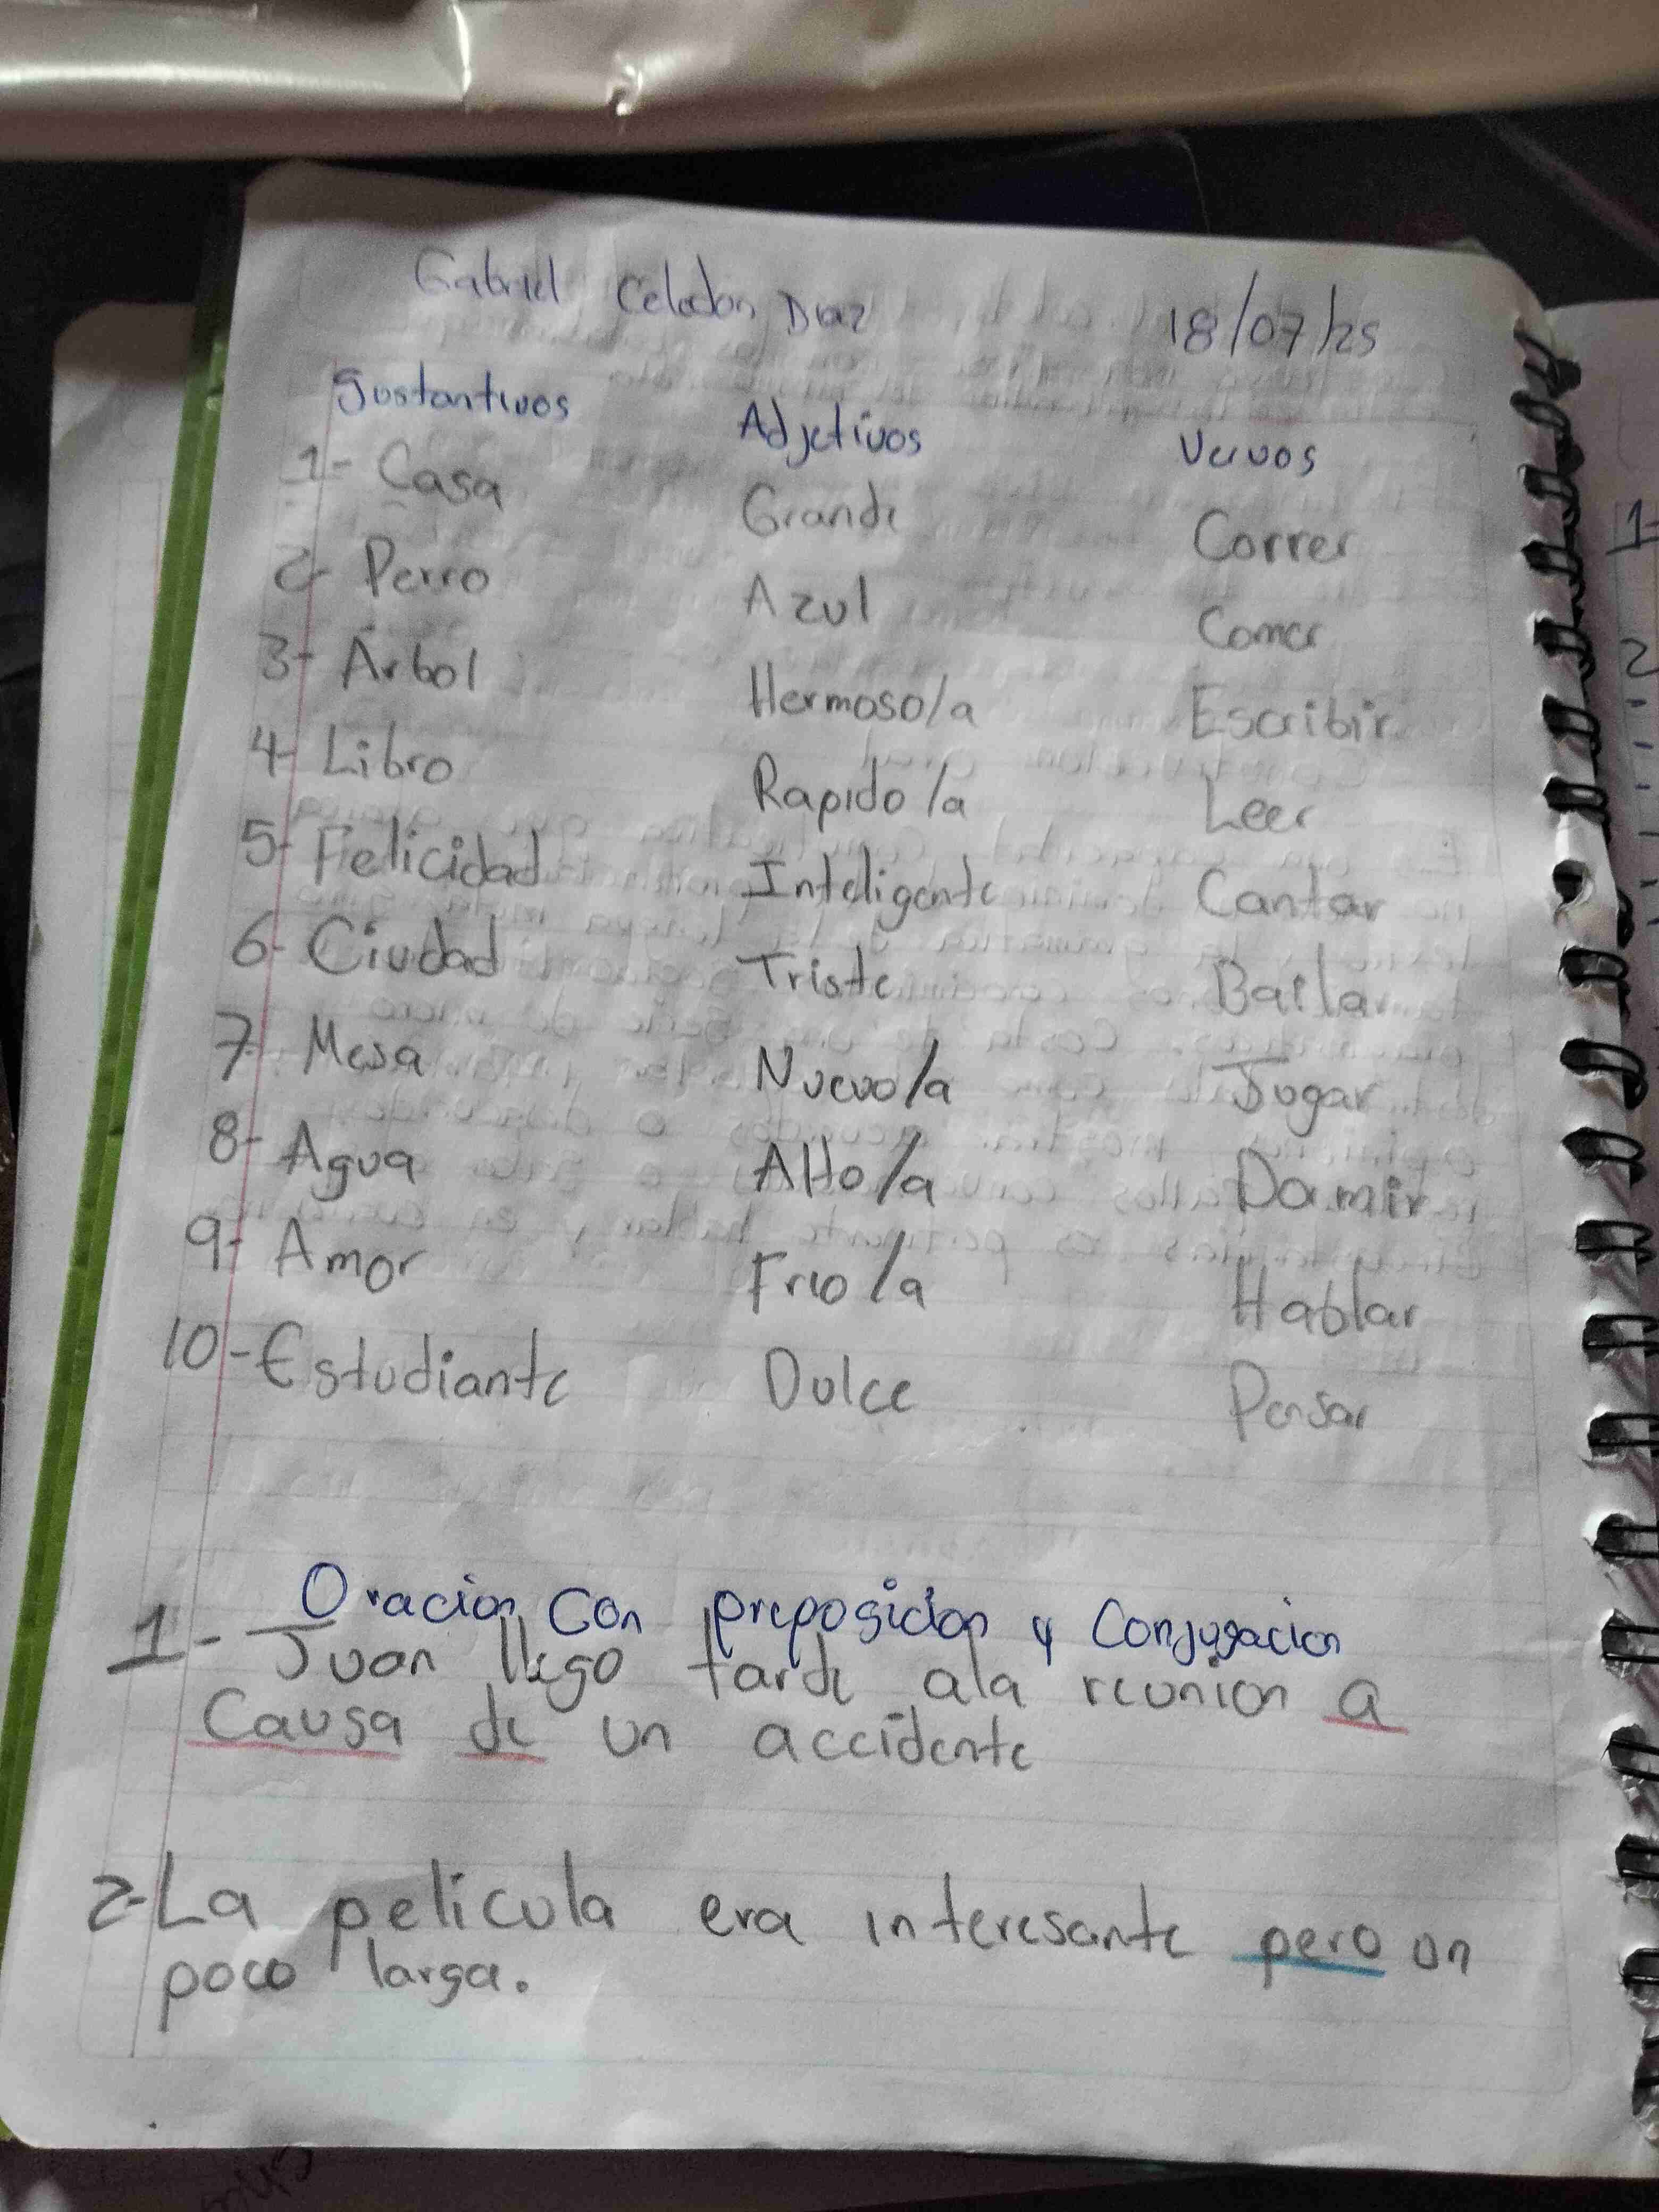 Gabriel Celadon Diaz 18/07/25
Sustantivos Adjetivos Vervos
1- Casa Grande Correr
2- Perro Azul Comer
3- Árbol Hermoso/a Escribir
4- Libro Rapido/a Leer
5- Felicidad Inteligente Cantar
6- Ciudad Triste Bailar
7- Mesa Nuevo/a Jugar
8- Agua Alto/a Dormir
9- Amor Frio/a Hablar
10- Estudiante Dulce Pensar
Oracion con preposicion y Conjugacion
1- Juan llego tarde ala reunion a
Causa de un accidente
2- La pelicula era interesante pero un
poco larga.
1-
2